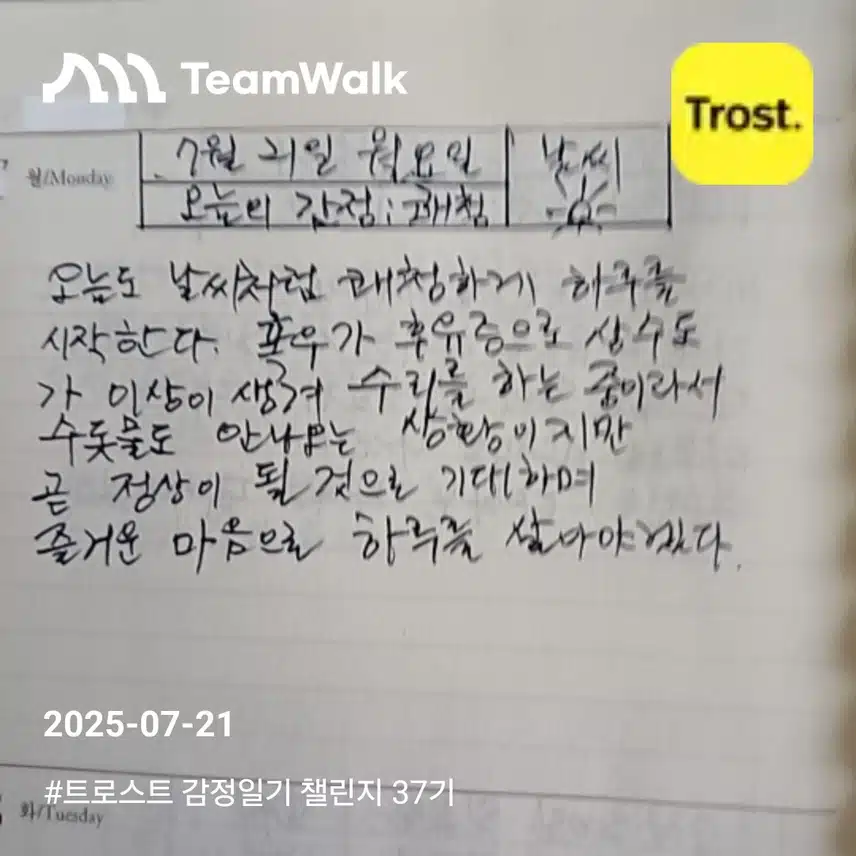 TeamWalk
Trost.
월/Monday
7월 21일 월요일
날씨
오늘의 감정: 쾌청
오늘도 날씨처럼 쾌청하게 하루를
시작한다. 폭우가 후유증으로 상수도
가 이상이 생겨 수리를 하는 중이라서
수돗물도 안나오는 상황이지만
곧 정상이 될 것으로 기대하며
즐거운 마음으로 하루를 살아야겠다.
2025-07-21
#트로스트 감정일기 챌린지 37기
화/Tuesday